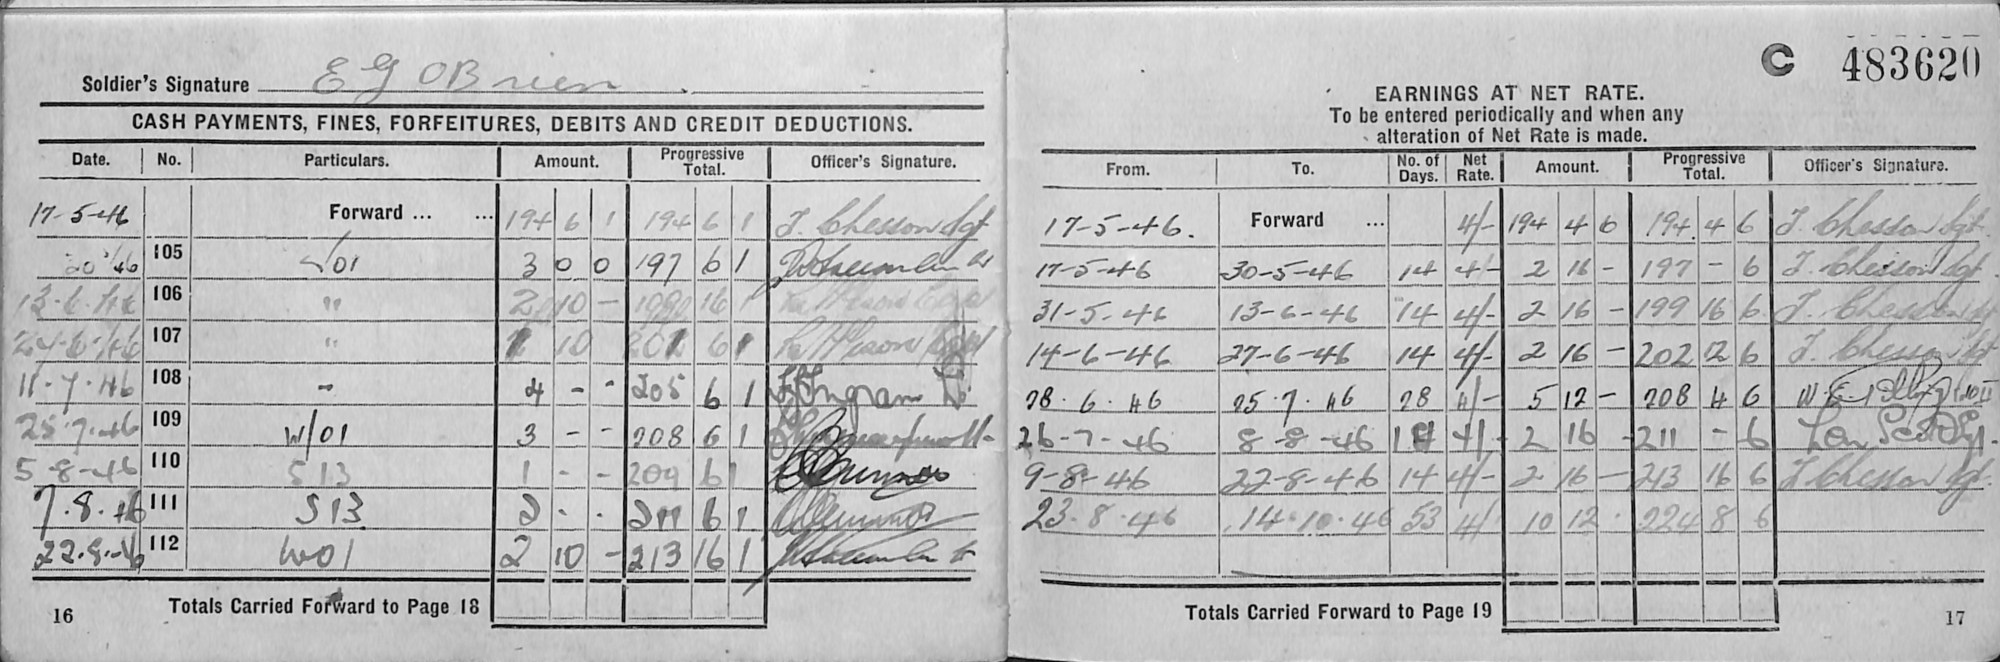 Soldier's Signature E G O'Brien
CASH PAYMENTS, FINES, FORFEITURES, DEBITS AND CREDIT DEDUCTIONS.
Date. No. Particulars. Amount. Progressive Total. Officer's Signature.
17-5-46 Forward ... ... 194 6 1 194 6 1 J. Chesson Sgt
105 W01 3 0 0 197 6 1
13-6-46 106 " 2 10 - 199 16 1
107 " 10 6 1
11-7-46 108 " 4 - - 205 6 1
25-7-46 109 W/01 3 - - 208 6 1
5-8-46 110 S13 1 - - 209 6 1
7.8.46 111 S13 2 . . 211 6 1
22.8.46 112 W01 2 10 - 213 16 1
Totals Carried Forward to Page 18
16
C 483620
EARNINGS AT NET RATE.
To be entered periodically and when any
alteration of Net Rate is made.
From. To. No. of Days. Net Rate. Amount. Progressive Total. Officer's Signature.
17-5-46. Forward ... 4/- 194 4 6 194 4 6 J. Chesson Sgt.
17-5-46 30-5-46 14 4/- 2 16 - 197 - 6 J. Chesson Sgt
31-5-46 13-6-46 14 4/- 2 16 - 199 16 6 J. Chesson Sgt
14-6-46 27-6-46 14 4/- 2 16 - 202 12 6 J. Chesson Sgt
28.6.46 25.7.46 28 4/- 5 12 - 208 4 6
26-7-46 8-8-46 14 4/- 2 16 - 211 - 6
9-8-46 22-8-46 14 4/- 2 16 - 213 16 6 J Chesson Sgt.
23.8.46 14.10.46 53 4/ 10 12 . 224 8 6
Totals Carried Forward to Page 19
17